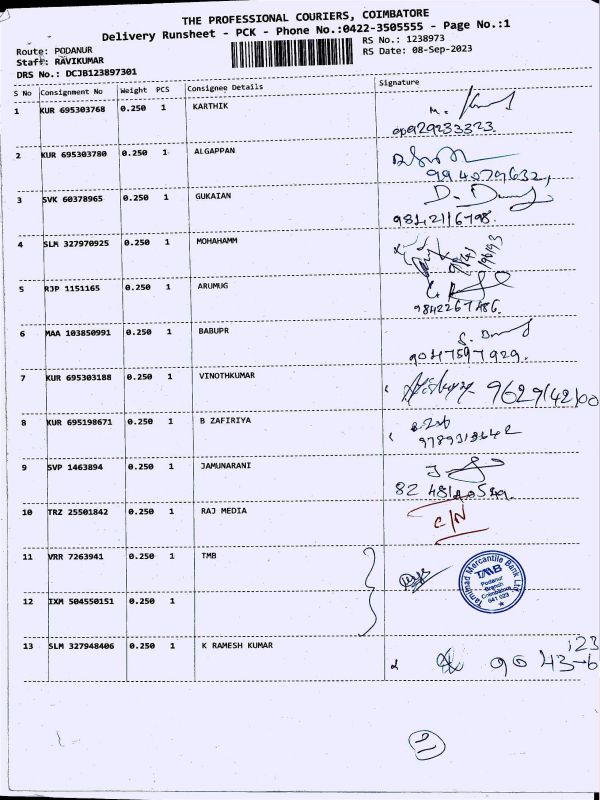 THE PROFESSIONAL COURIERS, COIMBATORE
Delivery Runsheet - PCK - Phone No.:0422-3505555 - Page No.:1
Route: PODANUR
RS No.: 1238973
Staff: RAVIKUMAR
RS Date: 08-Sep-2023
DRS No.: DCJB123897301
S No Consignment No Weight PCS Consignee Details Signature
1 KUR 695303768 0.250 1 KARTHIK
2 KUR 695303780 0.250 1 ALGAPPAN
3 SVK 60378965 0.250 1 GUKAIAN
9842116798
4 SLM 327970925 0.250 1 MOHAHAMM
5 RJP 1151165 0.250 1 ARUMUG
9842267486.
6 MAA 103850991 0.250 1 BABUPR
9047597929.
7 KUR 695303188 0.250 1 VINOTHKUMAR
8 KUR 695198671 0.250 1 B ZAFIRIYA
9789313642
9 SVP 1463894 0.250 1 JAMUNARANI
10 TRZ 25501842 0.250 1 RAJ MEDIA C/N
11 VRR 7263941 0.250 1 TMB
Tamilnad Mercantile Bank Ltd
TMB
Podanur
Branch
Coimbatore
641 023
12 IXM 504550151 0.250 1
13 SLM 327948406 0.250 1 K RAMESH KUMAR
123
9043-6
2